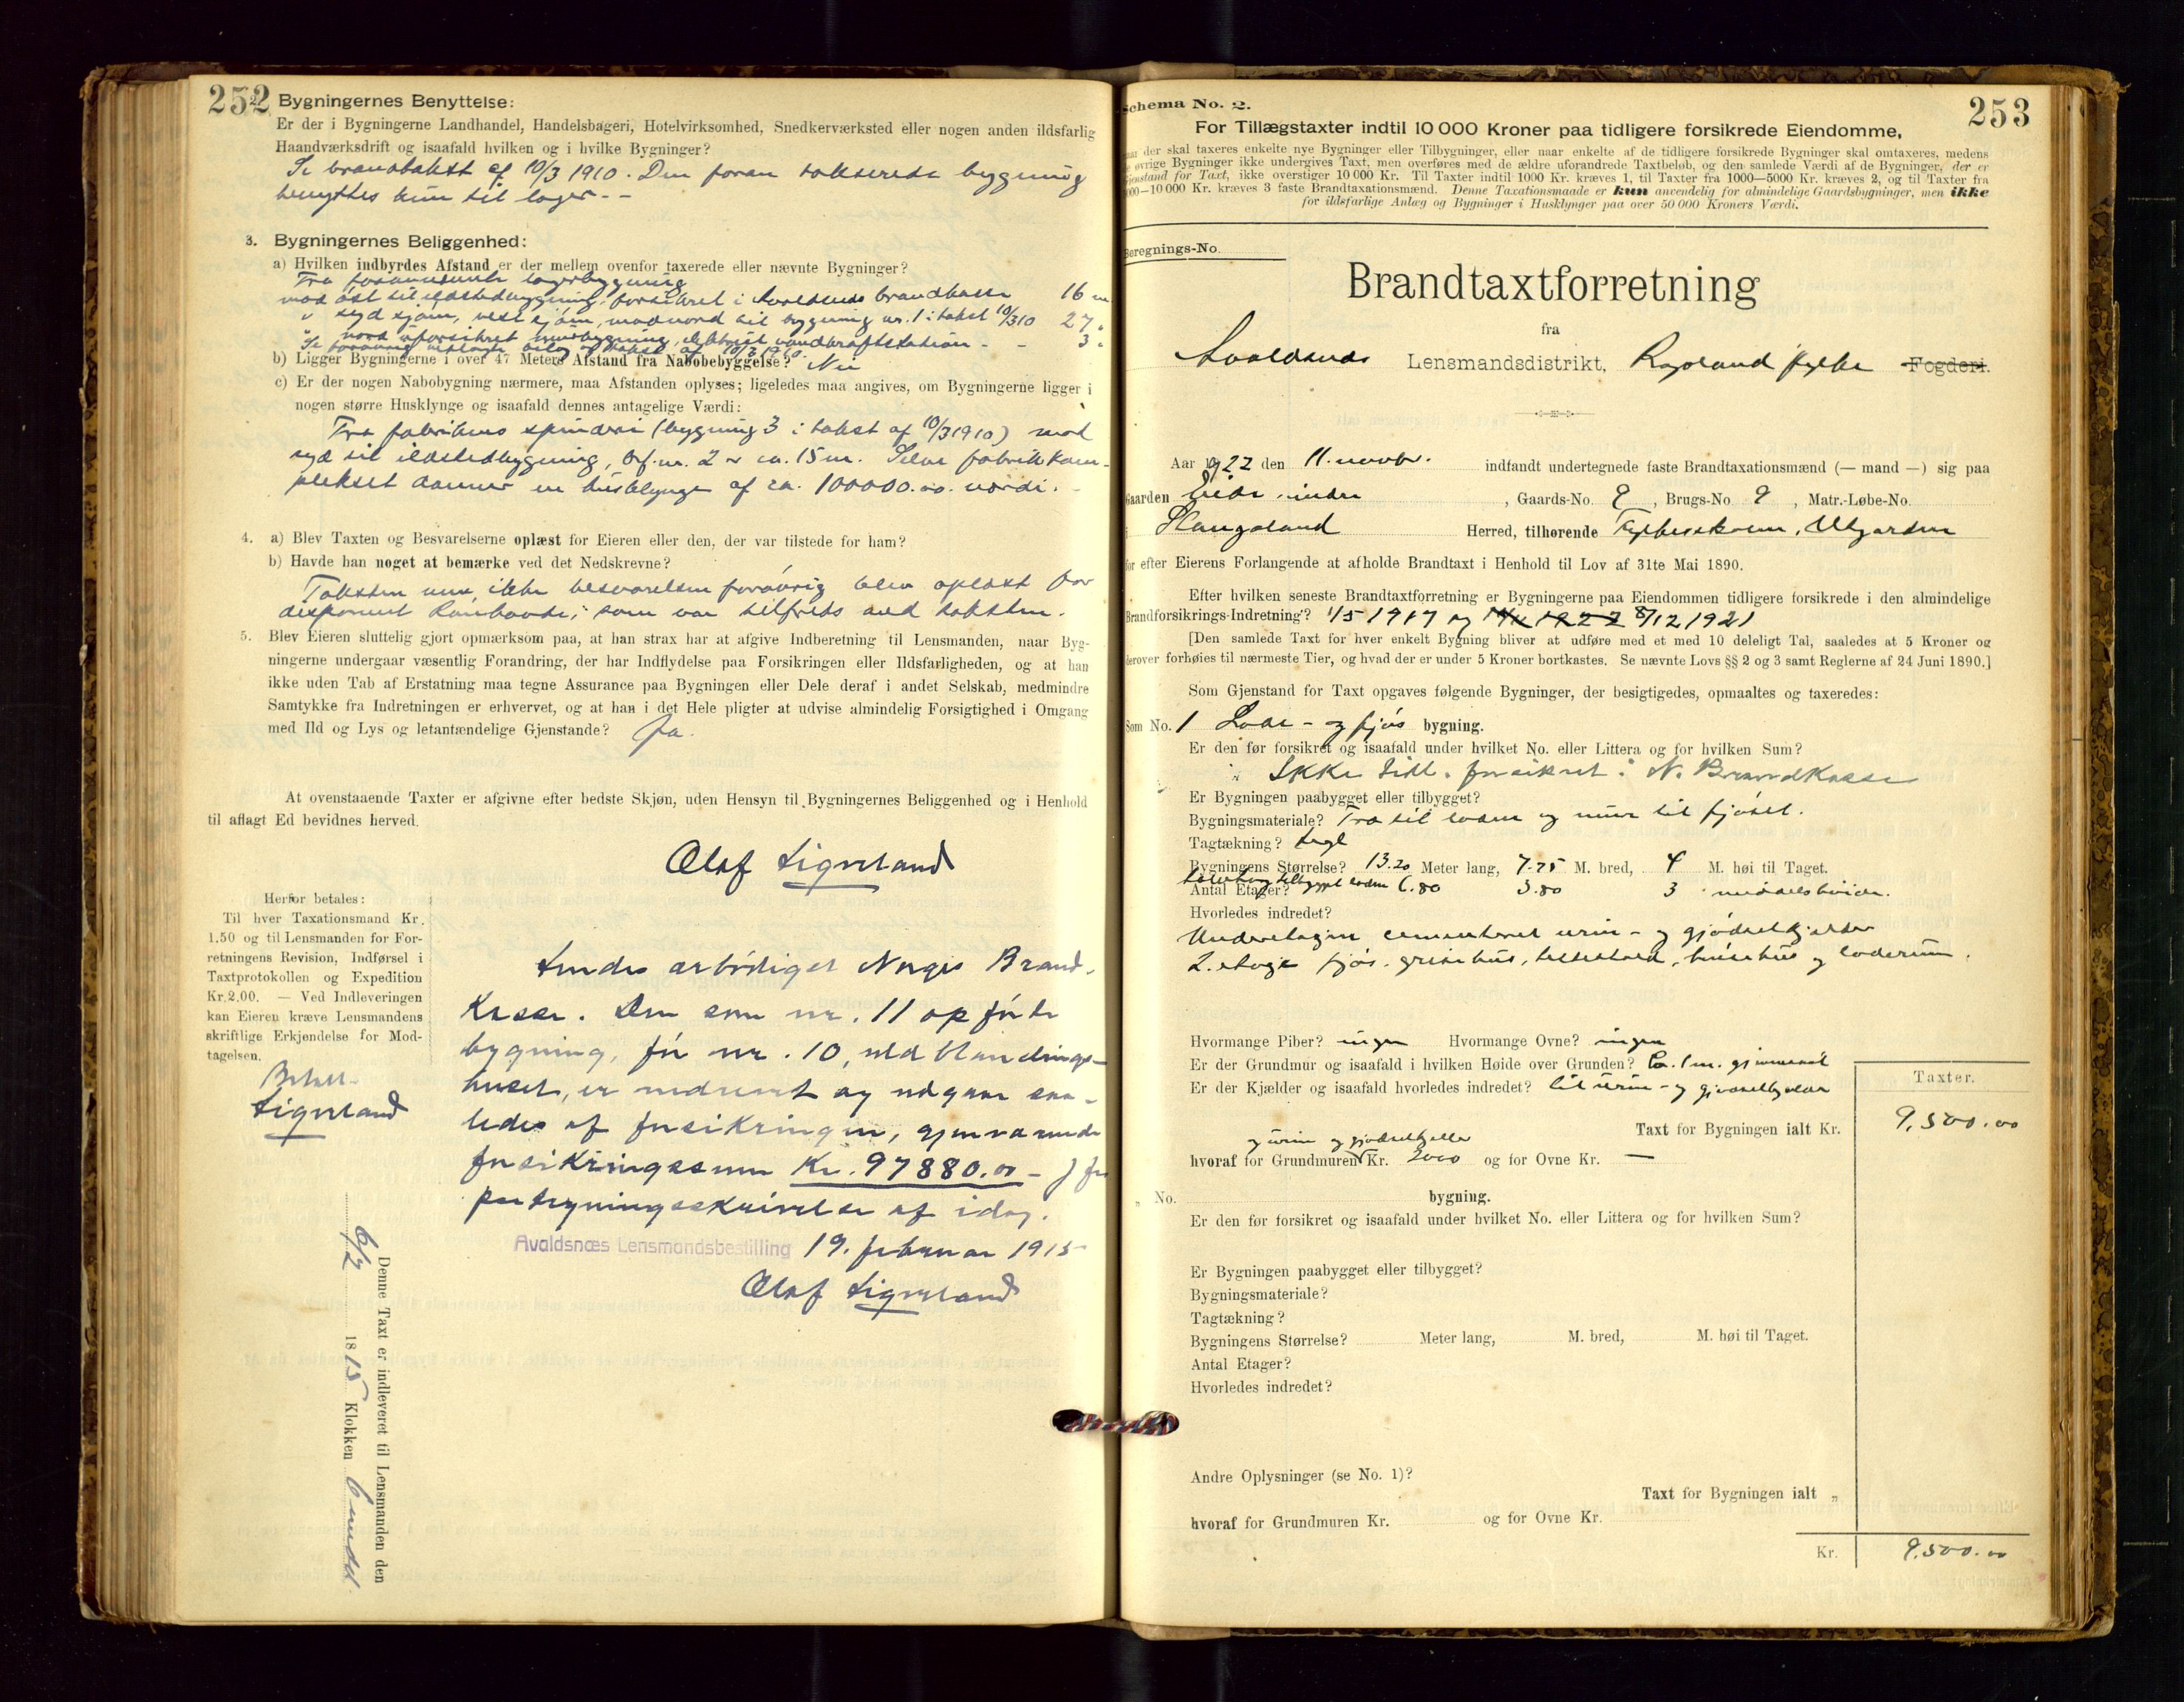 252
Bygningernes Benyttelse:
Er der i Bygningerne Landhandel, Handelsbageri, Hotelvirksomhed, Snedkerværksted eller nogen anden ildsfarlig
Haandværksdrift og isaafald hvilken og i hvilke Bygninger?
Se brandtakst af 10/3 1910. Den foran takserede bygning
benyttes kun til lager.-
3. Bygningernes Beliggenhed:
a) Hvilken indbyrdes Afstand er der mellem ovenfor taxerede eller nævnte Bygninger?
Fra lagerbygning
mod øst til ildstedbygning, forsikret i Avaldsnes brandkasse 16 m
" syd sjøen, vest sjøen, mod nord til bygning nr. 1 i takst 10/3 10 27 "
" nord uforsikret murbygning, elektrisk vandkraftstation - - 3 "
b) Ligger Bygningerne i over 47 Meters Afstand fra Nabobebyggelse? Nei
c) Er der nogen Nabobygning nærmere, maa Afstanden oplyses; ligeledes maa angives, om Bygningerne ligger i
nogen større Husklynge og isaafald dennes antagelige Værdi:
Fra fabrikens spinderi (bygning 3 i takst af 10/3 1910) mod
syd til ildstedbygning, nr. 2 er ca. 15 m. Selve fabrikkom-
plekset danner en husklynge af ca. 100000.oo værdi.
4. a) Blev Taxten og Besvarelserne oplæst for Eieren eller den, der var tilstede for ham?
b) Havde han noget at bemærke ved det Nedskrevne?
Taksten men ikke besvarelsen forøvrig blev oplæst for
disponent som var tilfreds med taksten.
5. Blev Eieren sluttelig gjort opmærksom paa, at han strax har at afgive Indberetning til Lensmanden, naar Byg-
ningerne undergaar væsentlig Forandring, der har Indflydelse paa Forsikringen eller Ildsfarligheden, og at han
ikke uden Tab af Erstatning maa tegne Assurance paa Bygningen eller Dele deraf i andet Selskab, medmindre
Samtykke fra Indretningen er erhvervet, og at han i det Hele pligter at udvise almindelig Forsigtighed i Omgang
med Ild og Lys og letantændelige Gjenstande? Ja.
At ovenstaaende Taxter er afgivne efter bedste Skjøn, uden Hensyn til Bygningernes Beliggenhed og i Henhold
til aflagt Ed bevidnes herved.
Olaf Sigveland
Herfor betales:
Til hver Taxationsmand Kr.
1.50 og til Lensmanden for For-
retningens Revision, Indførsel i
Taxtprotokollen og Expedition
Kr. 2.00. — Ved Indleveringen
kan Eieren kræve Lensmandens
skriftlige Erkjendelse for Mod-
tagelsen.
Betalt
Sigveland
Sendes ærbødigst Norges Brand-
kasse. Den som nr. 11 opførte
bygning, før nr. 10, uldblandings-
huset, er nedrevet og udgaar saa-
ledes af forsikringen, gjenværende
forsikringssum Kr. 97880.oo - jfr
paategningsskrivelse af idag.
Avaldsnæs Lensmandsbestilling 19. februar 1915
Olaf Sigveland
Denne Taxt er indleveret til Lensmanden den
6/2 1815 Klokken 6 emdd.
Schema No. 2.
253
For Tillægstaxter indtil 10 000 Kroner paa tidligere forsikrede Eiendomme,
naar der skal taxeres enkelte nye Bygninger eller Tilbygninger, eller naar enkelte af de tidligere forsikrede Bygninger skal omtaxeres, medens
de øvrige Bygninger ikke undergives Taxt, men overføres med de ældre uforandrede Taxtbeløb, og den samlede Værdi af de Bygninger, der er
Gjenstand for Taxt, ikke overstiger 10 000 Kr. Til Taxter indtil 1000 Kr. kræves 1, til Taxter fra 1000—5000 Kr. kræves 2, og til Taxter fra
5000—10 000 Kr. kræves 3 faste Brandtaxationsmænd. Denne Taxationsmaade er kun anvendelig for almindelige Gaardsbygninger, men ikke
for ildsfarlige Anlæg og Bygninger i Husklynger paa over 50 000 Kroners Værdi.
Beregnings-No.
Brandtaxtforretning
fra
Avaldsnes Lensmandsdistrikt, Rogaland fylke Fogderi.
Aar 1922 den 11. novbr. indfandt undertegnede faste Brandtaxationsmænd (— mand —) sig paa
Gaarden Eide, indre, Gaards-No. 9, Brugs-No 9, Matr.-Løbe-No.
i Haugaland Herred, tilhørende
for efter Eierens Forlangende at afholde Brandtaxt i Henhold til Lov af 31te Mai 1890.
Efter hvilken seneste Brandtaxtforretning er Bygningerne paa Eiendommen tidligere forsikrede i den almindelige
Brandforsikrings-Indretning? 1/5 1917 og 8/12 1921
[Den samlede Taxt for hver enkelt Bygning bliver at udføre med et med 10 deleligt Tal, saaledes at 5 Kroner og
derover forhøies til nærmeste Tier, og hvad der er under 5 Kroner bortkastes. Se nævnte Lovs §§ 2 og 3 samt Reglerne af 24 Juni 1890.]
Som Gjenstand for Taxt opgaves følgende Bygninger, der besigtigedes, opmaaltes og taxeredes:
Som No. 1 Lade- og fjøs bygning.
Er den før forsikret og isaafald under hvilket No. eller Littera og for hvilken Sum?
Ikke tidl. forsikret i N. Brandkasse
Er Bygningen paabygget eller tilbygget?
Bygningsmateriale? Træ til laden og mur til fjøset.
Tagtækning? tegl
Bygningens Størrelse? 13.20 Meter lang, 7.75 M. bred, 4 M. høi til Taget.
Antal Etager? tilbygget laden 6.80 3.80 3 middelshøide.
Hvorledes indredet?
Underetagen cementeret urin- og gjødselkjelder
2. etage fjøs, grisehus, hestestald, hønsehus og laderum.
Hvormange Piber? ingen Hvormange Ovne? ingen
Er der Grundmur og isaafald i hvilken Høide over Grunden? Ca. 1 m. gjennemsnit
Er der Kjælder og isaafald hvorledes indredet? til urin- og gjødselkjelder
Taxter.
Taxt for Bygningen ialt Kr. 9,500.oo
og urin og gjødselkjelder
hvoraf for Grundmuren Kr. 3000 og for Ovne Kr. —
" No. bygning.
Er den før forsikret og isaafald under hvilket No. eller Littera og for hvilken Sum?
Er Bygningen paabygget eller tilbygget?
Bygningsmateriale?
Tagtækning?
Bygningens Størrelse? Meter lang, M. bred, M. høi til Taget.
Antal Etager?
Hvorledes indredet?
Andre Oplysninger (se No. 1)?
Taxt for Bygningen ialt "
hvoraf for Grundmuren Kr. og for Ovne Kr.
Kr. 9.500.oo